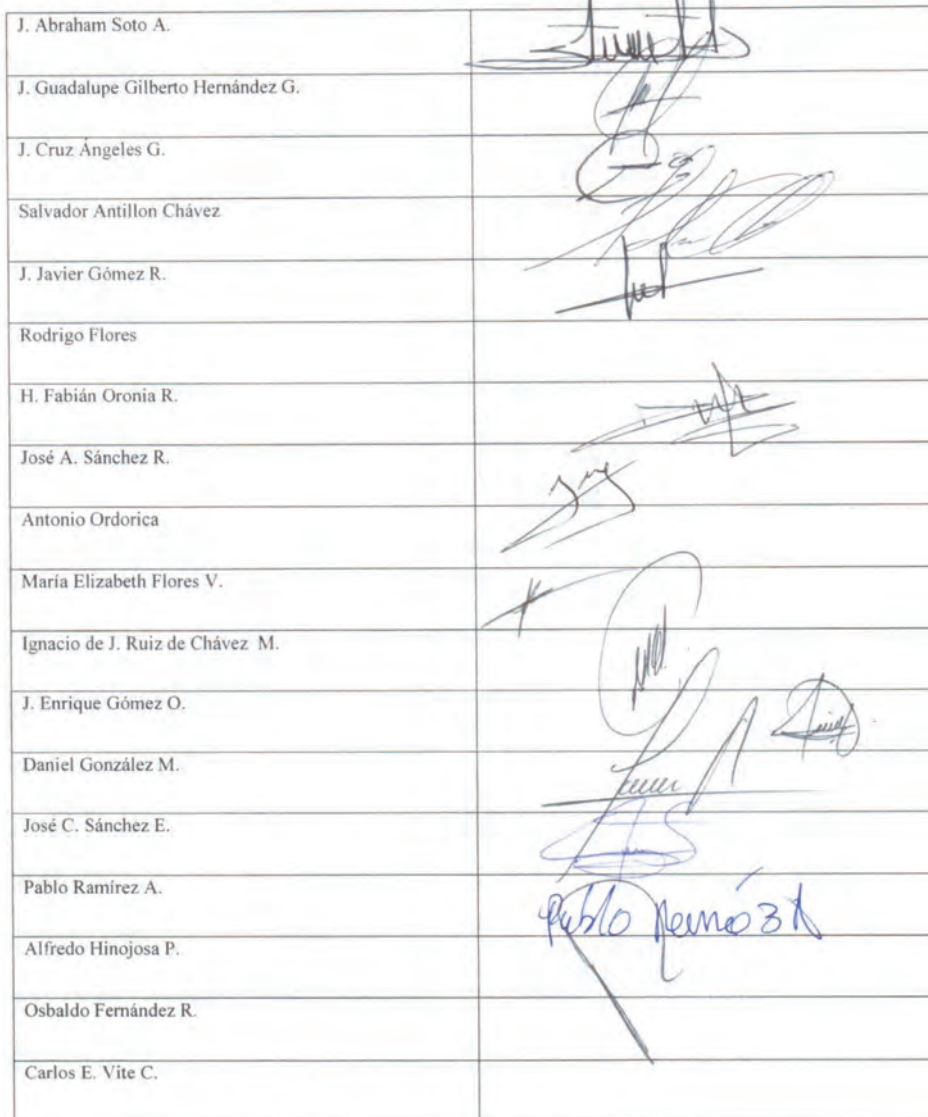 J. Abraham Soto A.
J. Guadalupe Gilberto Hernández G.
J. Cruz Ángeles G.
Salvador Antillon Chávez
J. Javier Gómez R.
Rodrigo Flores
H. Fabián Oronia R.
José A. Sánchez R.
Antonio Ordorica
María Elizabeth Flores V.
Ignacio de J. Ruiz de Chávez M.
J. Enrique Gómez O.
Daniel González M.
José C. Sánchez E.
Pablo Ramírez A.
Pablo
Alfredo Hinojosa P.
Osbaldo Fernández R.
Carlos E. Vite C.